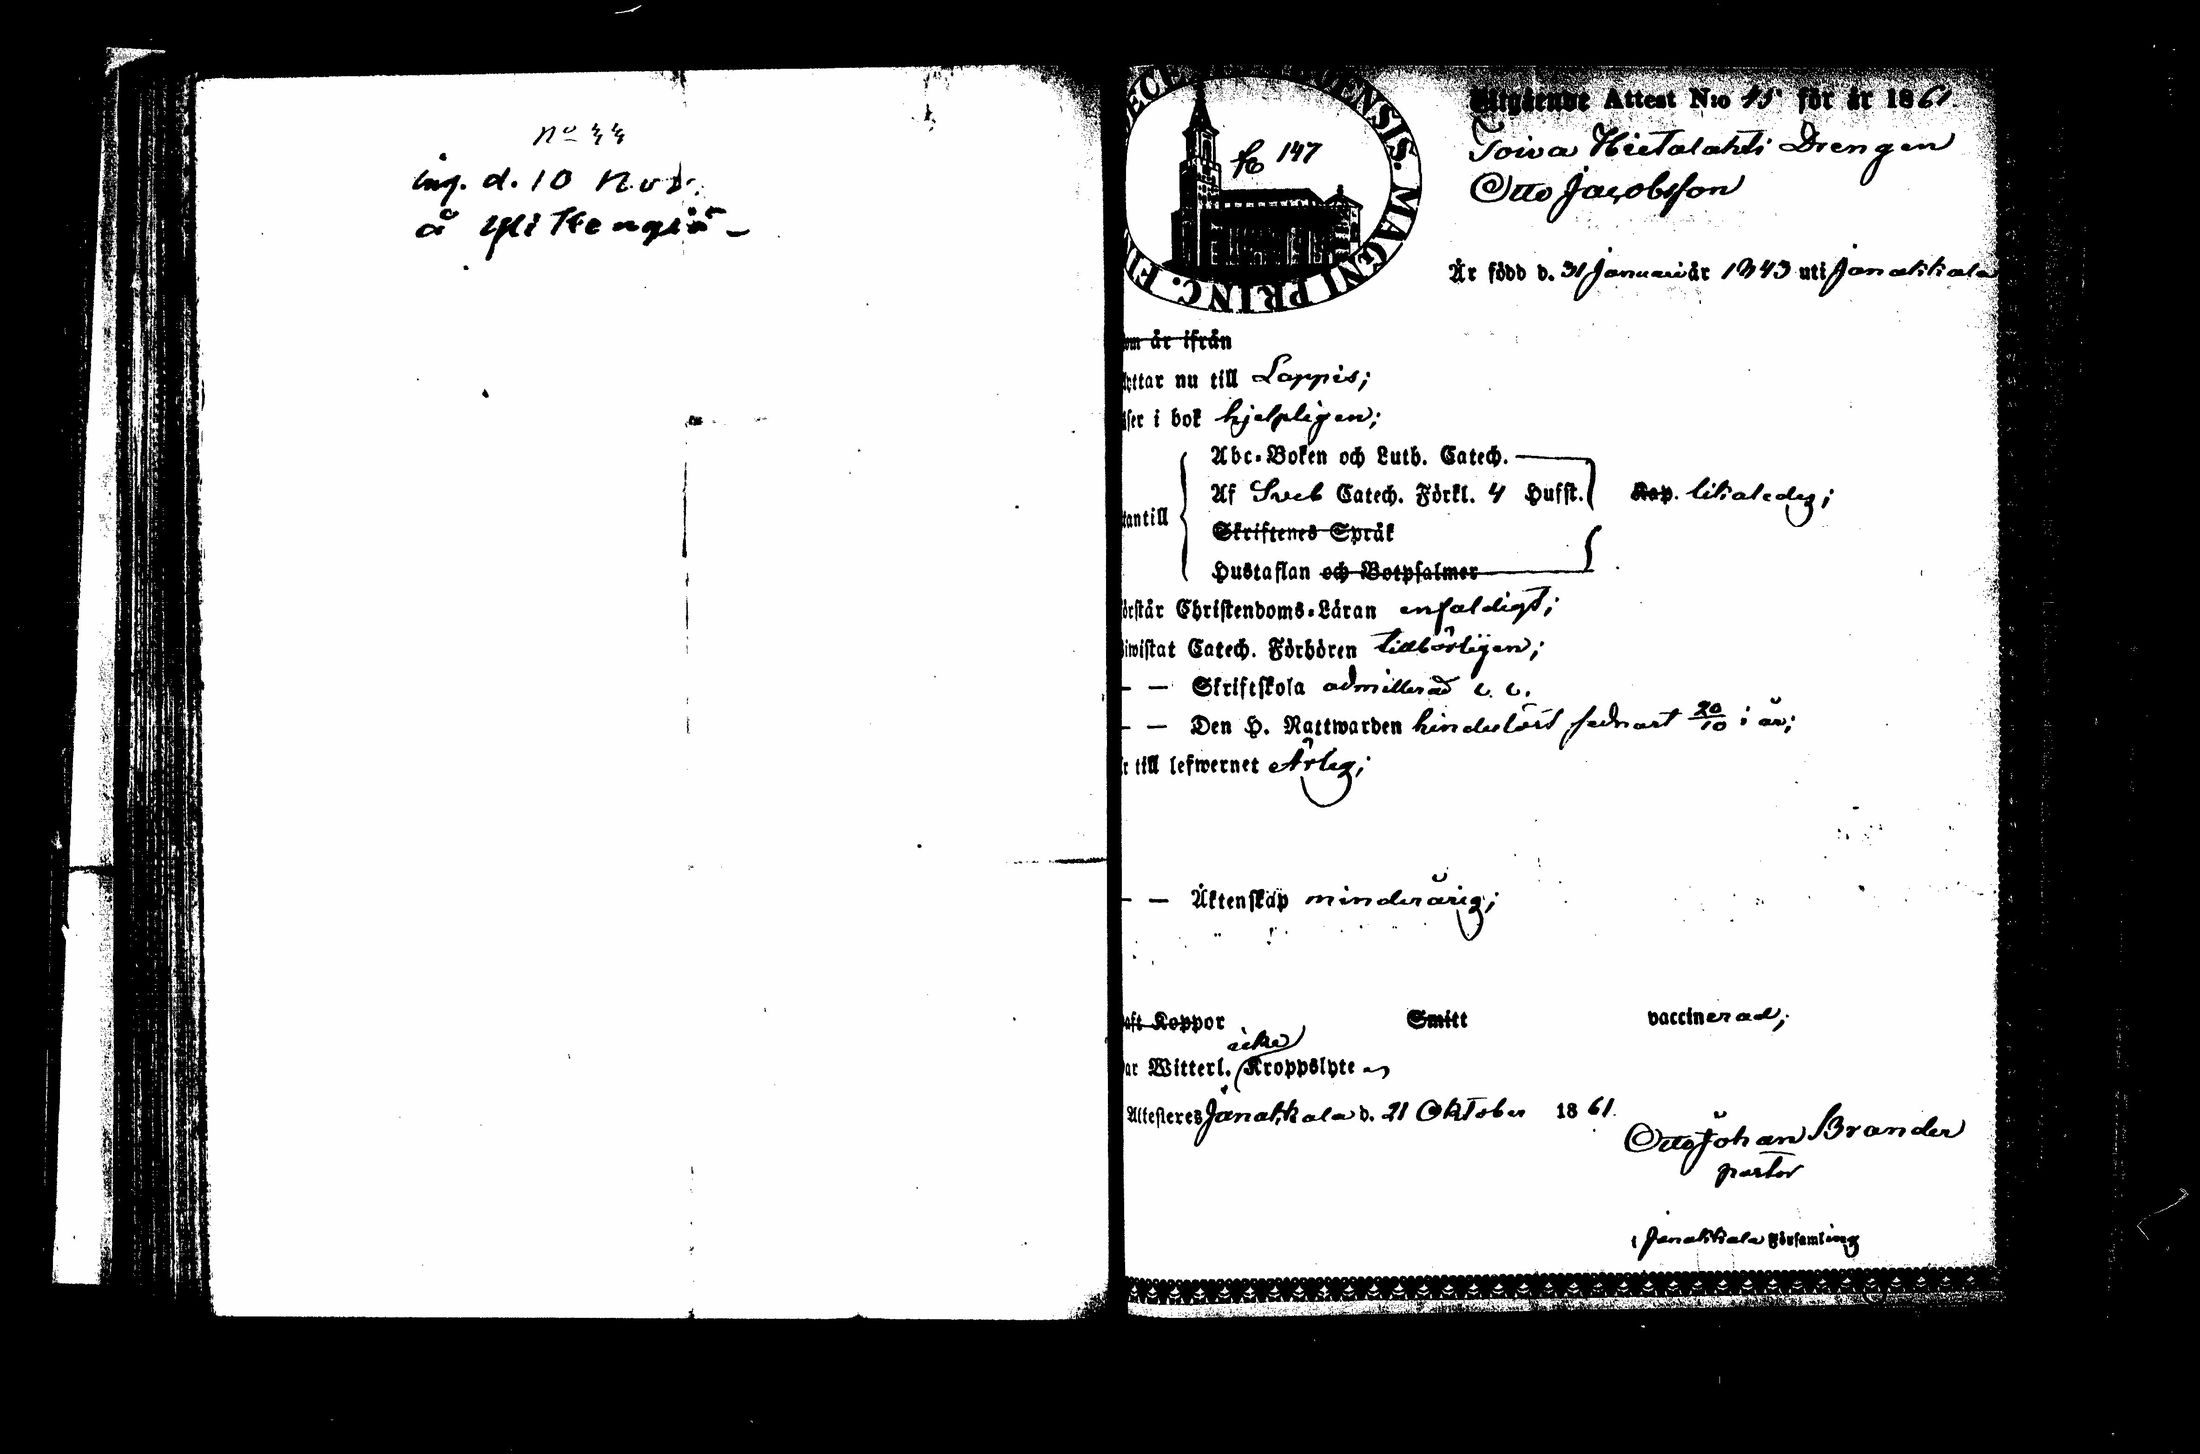 No 44
ing. d. 10 Nov.
å Yli Kengiä –
ENSIS. MAGNI PRINC. FI
fo 147
Utgående Attest N:o 45 för år 1861.
Toiva Hietalahti Drengen
Otto Jacobsson
Är född d. 31 Januari år 1843 uti Janakkala
om är ifrån
yttar nu till Loppis;
äser i bok hjelpligen;
Abc-Boken och Luth. Catech.
Af Sveb Catech. Förkl. 4 Hufst. Kap. likaledes;
tantill
Skriftenes Språk
Hustaflan och Botpsalmer
örstår Christendoms-Läran enfaldigt;
iwistat Catech. Förhören tillbörligen;
— — Skriftskola admitterad
— — Den H. Nattwarden hindelöst sednast 20/10 i år;
r till lefwernet Ärlig;
— — Äktenskap minderårig;
aft Koppor Smitt vaccinerad;
icke
ar Witterl. Kroppslyte
Attesteres Janakkala d. 21 Oktober 1861.
Otto Johan Brander
pastor
i Janakkala Församling